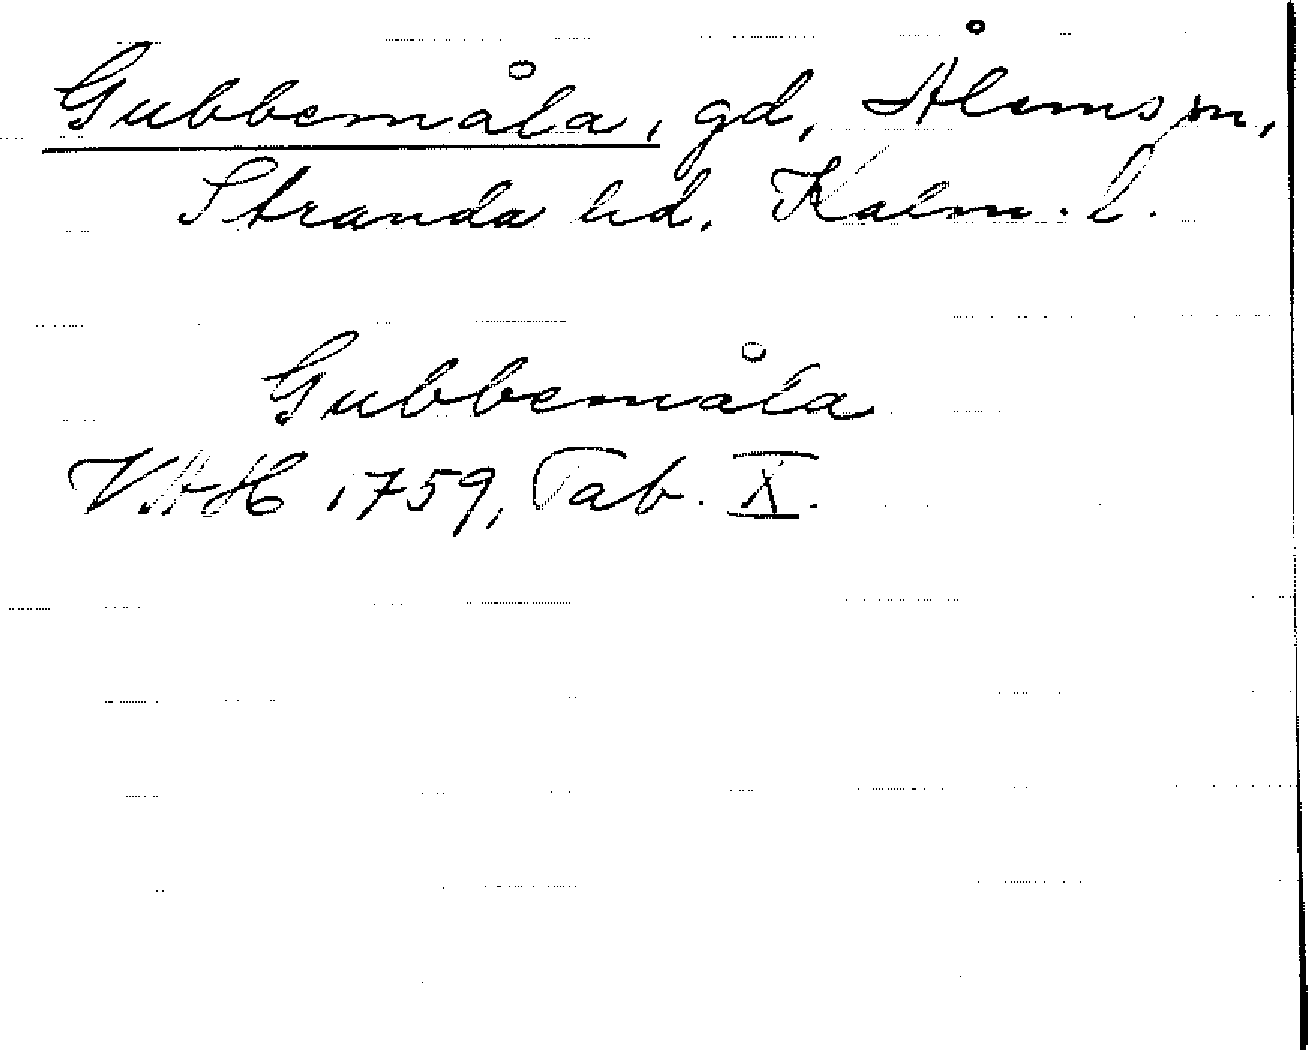 Gubbemåla, gd, Ålems sn,
Stranda hd. Kalm. l.
Gubbemåla
VAH 1759, Tab. X.